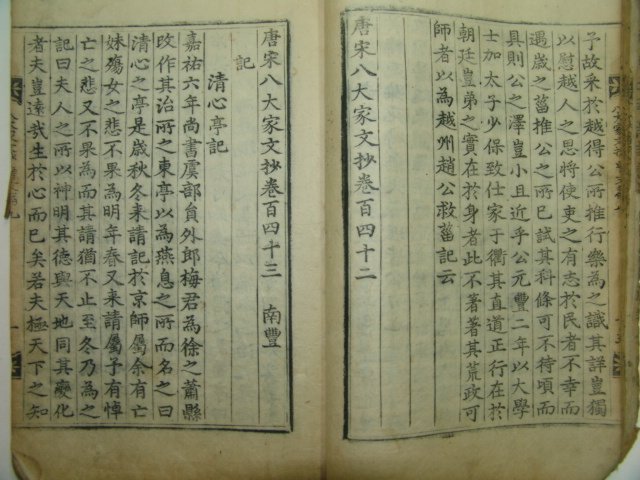 予故采於越得公所推行樂為之識其詳豈獨
以慰越人之思將使吏之有志於民者不幸而
遇歲之菑推公之所已試其科條可不待頃而
具則公之澤豈小且近乎公元豐二年以大學
士加太子少保致仕家于衢其直道正行在於
朝廷豈弟之實在於身者此不著著其荒政可
師者以為越州趙公救菑記云
唐宋八大家文抄卷百四十二
唐宋八大家文抄卷百四十三 南豐
記
清心亭記
嘉祐六年尚書虞部負外郎梅君為徐之蕭縣
改作其治所之東亭以為燕息之所而名之曰
清心之亭是歲秋冬来請記於京師屬余有亡
妹殤女之悲不果為明年春又来請屬予有悼
亡之悲又不果為而其請猶不止至冬乃為之
記曰夫人之所以神明其德與天地同其變化
者夫豈遠哉生於心而已矣若夫極天下之知